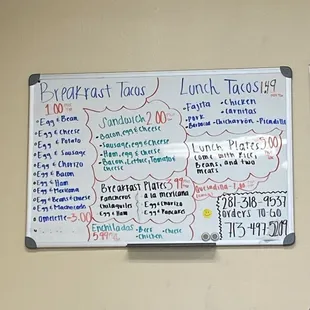 Breakfast Tacos
1.00
Egg & Bean
Egg & Cheese
Egg & Potato
Egg & Sausage
Egg & Chorizo
Egg & Bacon
Egg & Ham
Egg & Machicados
Omelette - 3.00
Sandwich 2.00
Bacon, egg & cheese
Sausage, egg & cheese
Ham, egg & cheese
Bacon, Lettuce, Tomato & cheese
Breakfast Plates 3.99
Rancheros
a la mexicana
Chilaquiles
Egg & Chorizo
Egg & Ham
Egg & Pancake
Enchiladas
5.99
Beef
Cheese
Chicken
Lunch Tacos 1.49
Fajita
Chicken
Carnitas
Pork
Barbacoa
Chicharrón
Picadillo
Lunch Plates
5.00
Come with Rice,
Beans, and two
meats
Quesadilla
281-318-9537
orders To-Go
713-497-